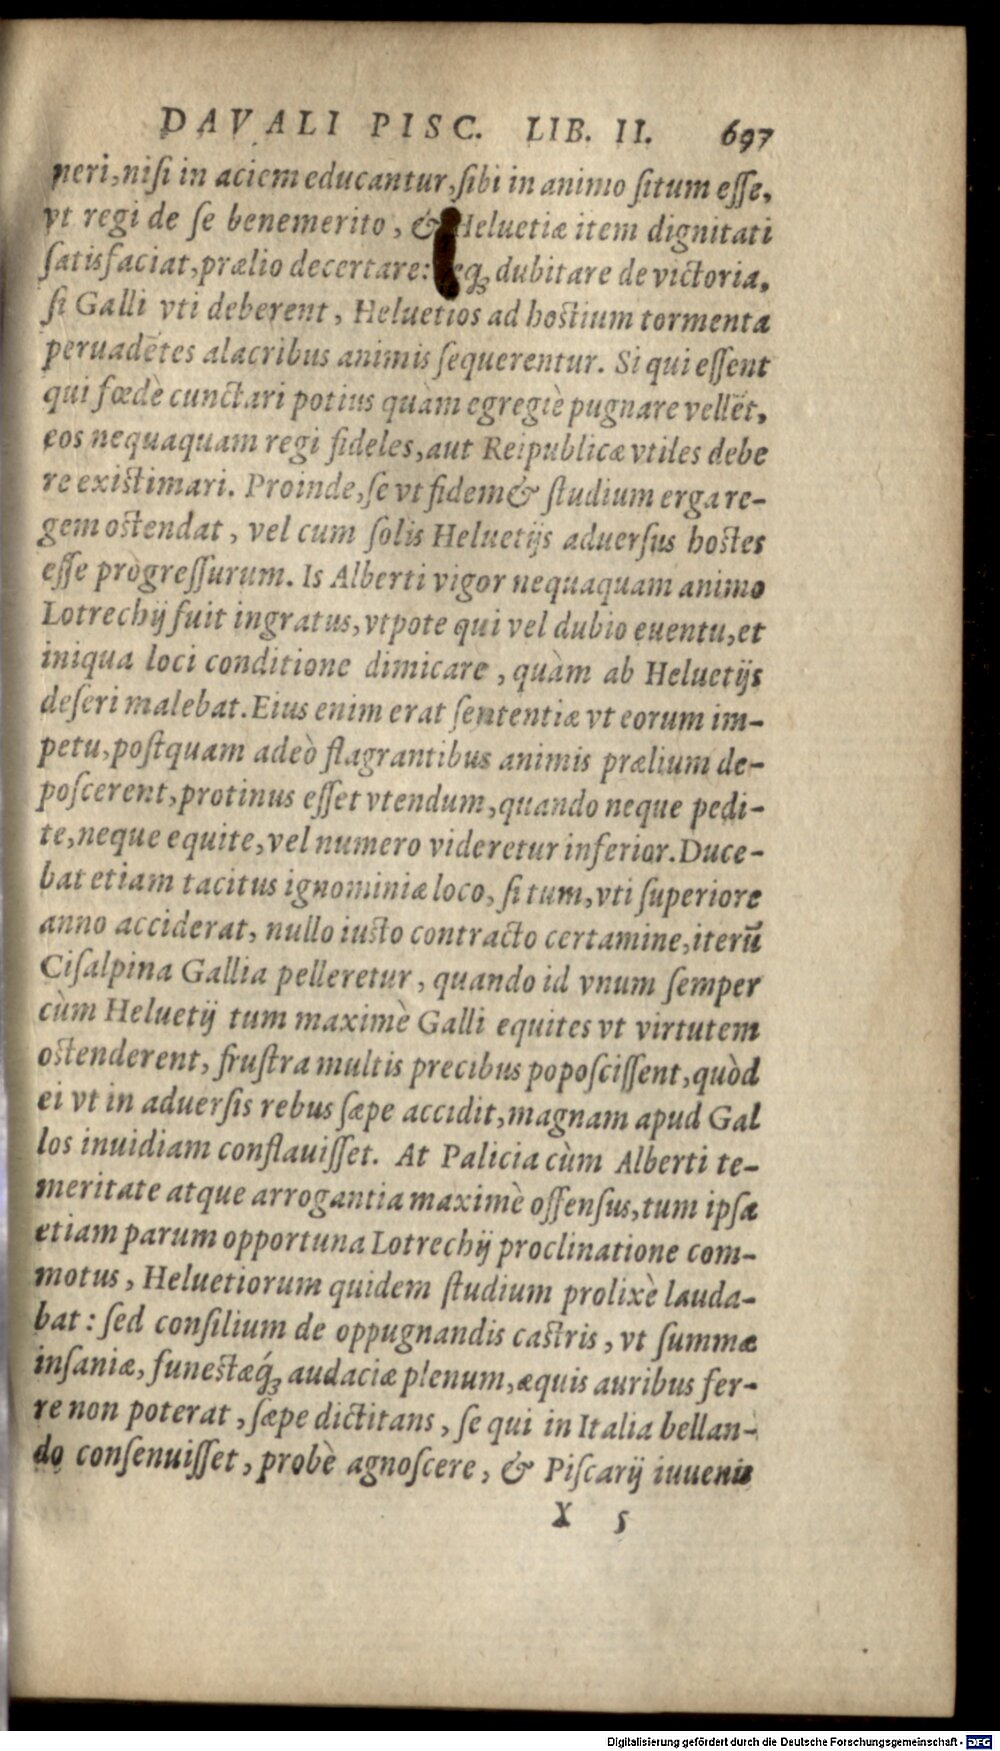 DAVALI PISC. LIB. II. 697
neri, nisi in aciem educantur, sibi in animo situm esse,
vt regi de se benemerito, & Heluetiæ item dignitati
satisfaciat, prælio decertare: dubitare de victoria,
si Galli vti deberent, Heluetios ad hostium tormenta
peruadētes alacribus animis sequerentur. Si qui essent
qui fœdè cunctari potius quàm egregiè pugnare vellēt,
eos nequaquam regi fideles, aut Reipublicæ vtiles debe
re existimari. Proinde, se vt fidem & studium erga re-
gem ostendat, vel cum solis Heluetijs aduersus hostes
esse prògressurum. Is Alberti vigor nequaquam animo
Lotrechij fuit ingratus, vtpote qui vel dubio euentu, et
iniqua loci conditione dimicare, quàm ab Heluetijs
deseri malebat. Eius enim erat sententiæ vt eorum im-
petu, postquam adeò flagrantibus animis prælium de-
poscerent, protinus esset vtendum, quando neque pedi-
te, neque equite, vel numero videretur inferior. Duce-
bat etiam tacitus ignominiæ loco, si tum, vti superiore
anno acciderat, nullo iusto contracto certamine, iterū
Cisalpina Gallia pelleretur, quando id vnum semper
cùm Heluetij tum maximè Galli equites vt virtutem
ostenderent, frustra multis precibus poposcissent, quòd
ei vt in aduersis rebus sæpe accidit, magnam apud Gal
los inuidiam conflauisset. At Palicia cùm Alberti te-
meritate atque arrogantia maximè offensus, tum ipsa
etiam parum opportuna Lotrechij proclinatione com-
motus, Heluetiorum quidem studium prolixè lauda-
bat: sed consilium de oppugnandis castris, vt summæ
insaniæ, funestæq́; audaciæ plenum, æquis auribus fer-
re non poterat, sæpe dictitans, se qui in Italia bellan-
do consenuisset, probè agnoscere, & Piscarij iuuenis
X 5
Digitalisierung gefördert durch die Deutsche Forschungsgemeinschaft - DFG